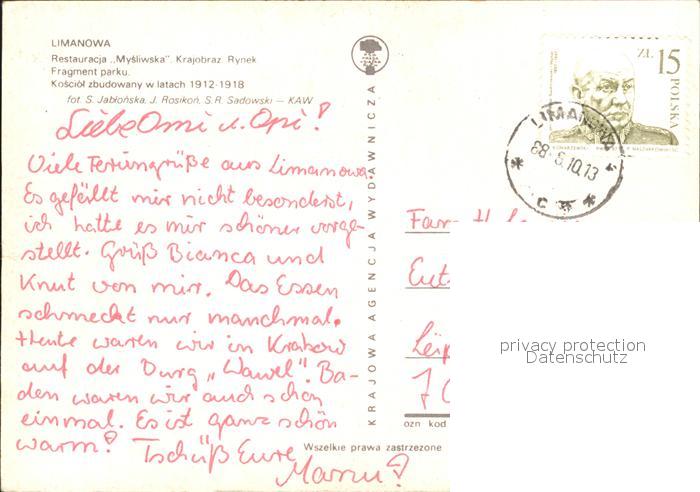 LIMANOWA
Restauracja „Myśliwska". Krajobraz. Rynek
Fragment parku.
Kościół zbudowany w latach 1912-1918
fot. S. Jabłońska, J. Rosikoń, S.R. Sadowski — KAW
Liebe Omi u. Opi!
Viele Feriengrüße aus Limanowa.
Es gefällt mir nicht besonderst,
ich hatte es mir schöner vorge-
stellt. Grüß Bianca und
Knut von mir. Das Essen
schmeckt nur manchmal.
Heute waren wir in Krakow
auf der Burg „Wawel". Ba-
den waren wir auch schon
einmal. Es ist ganz schön
warm! Tschüß Eure
KRAJOWA AGENCJA WYDAWNICZA
ZŁ 15
POLSKA
LIMANOWA
88-8.10.13
Fam.
Leip
7
ozn kod
Wszelkie prawa zastrzeżone
privacy protection
Datenschutz